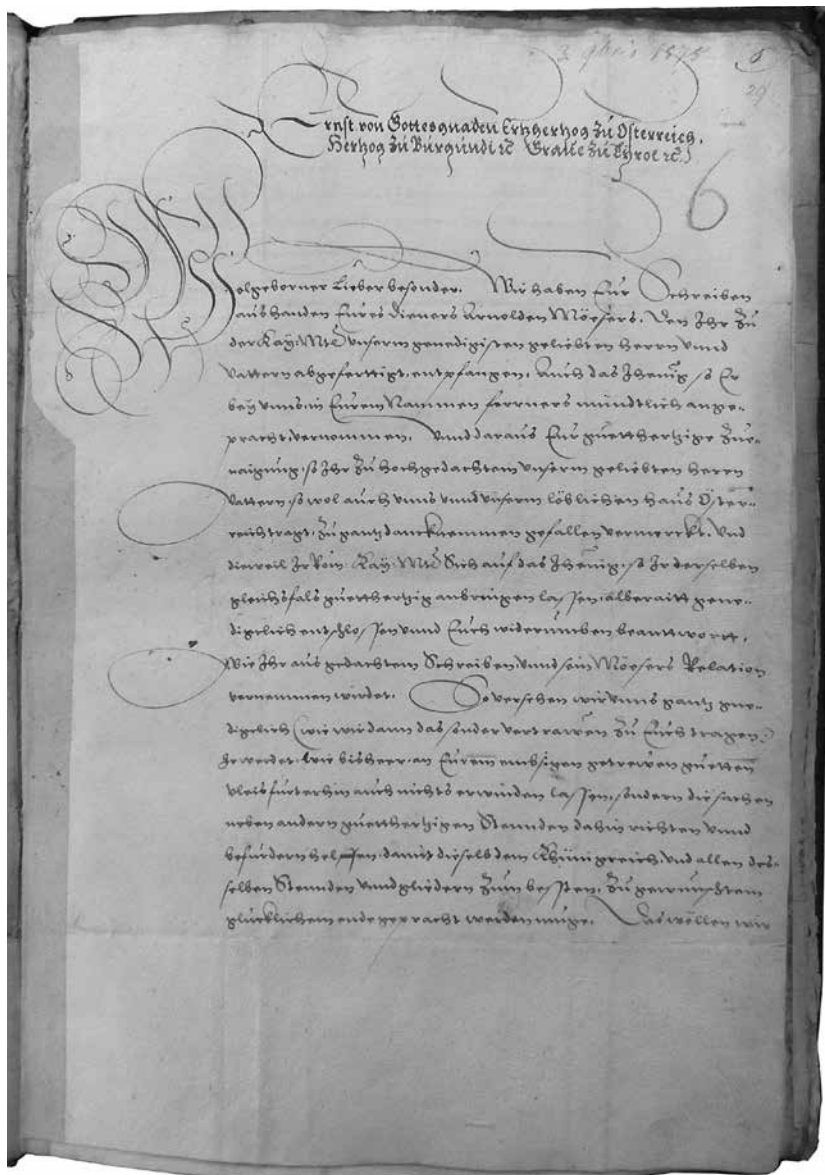 3 9bris 1575
6
29
Ernst von Gottes gnaden Ertzhertzog zu Osterreich,
Hertzog zu Burgundi &c Graue zu Tyrol &c.
6
Wolgeborner Lieber besonder. Wir haben Eur Schreiben
aus handen Eures dieners Arnolden Möesers, den Ihr zu
der Kay: Mte vnserm genedigisten geliebten herrn vnnd
vattern abgeferttigt, entpfangen, Auch das Ihenig so Er
bey vnns, in Eurem Nammen ferrners mündtlich ange-
pracht, vernommen, vnnd daraus Eur guetthertzige Zue-
naigung, so Ihr zu hochgedachtem vnserm geliebten herrn
vattern, so wol auch vnns vnnd vnserm löblichen haus Öster-
reich tragt, zu gantz dancknemmen gefallen vermerckt, Vnd
dieweil Ir Röm: Kay: Mte Sich auf das Ihenig, so Ir derselben
gleichsfals guetthertzig anbringen lassen, alberaitt gene-
digclich entschlossen vnnd Euch widerumben beanttwortt,
Wie Ihr aus gedachtem Schreiben, vnnd sein Möesers Relation
vernemmen wirdet. So versehen wir vnns gantz gne-
digclich (wie wir dann das sonder vertrawen zu Euch tragen)
Ir werdet, wie bisheer, an Eurem embsigen getrewen guetten
vleis fürterhin auch nichts erwinden lassen, sondern die sachen
neben andern guetthertzigen Stennden dahin richten vnnd
befürdern helffen, damit dieselb dem Khünigreich, vnd allen des-
selben Stennden vnnd gliedern zum bessten, zu gewunschtem
glücklichem ende gepracht werden müge. Das wöllen wir